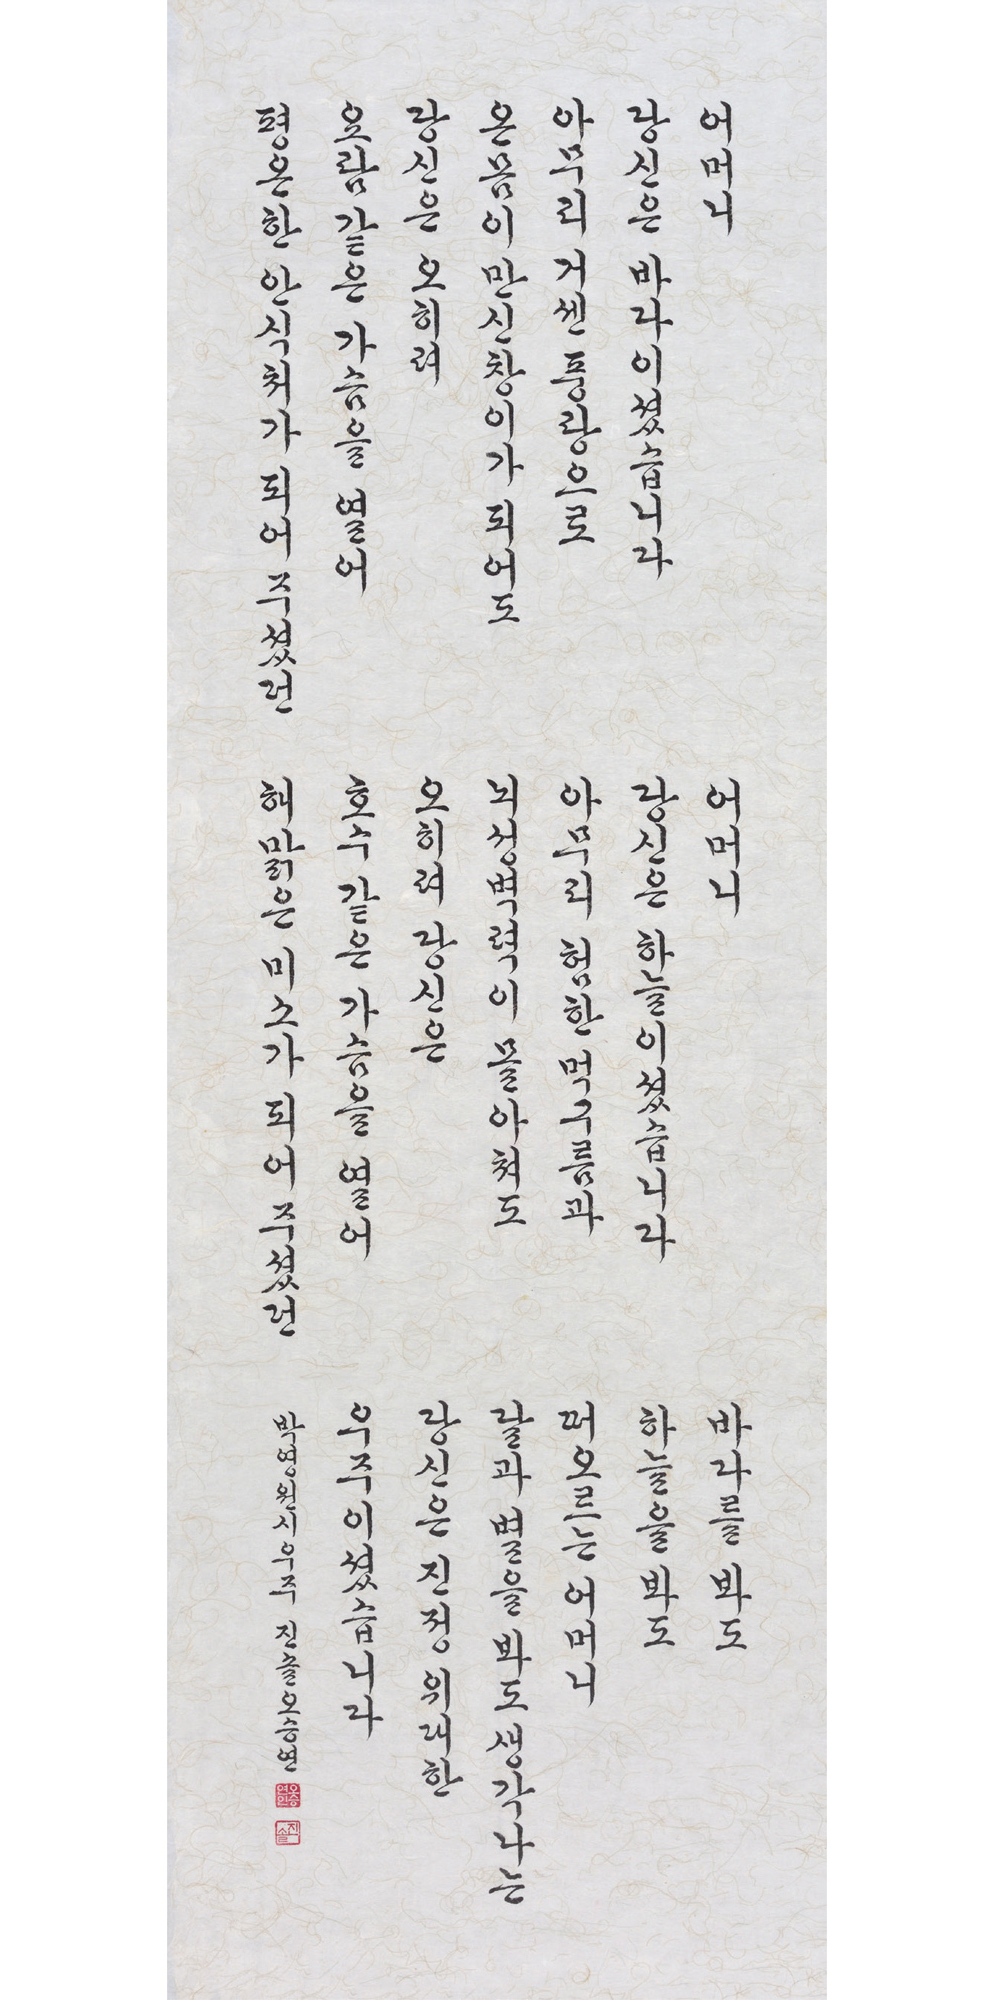 어머니
당신은 바다이셨습니다
아무리 거센 풍랑으로
온몸이 만신창이가 되어도
당신은 오히려
요람 같은 가슴을 열어
평온한 안식처가 되어 주셨던
어머니
당신은 하늘이셨습니다
아무리 험한 먹구름과
뇌성벽력이 몰아쳐도
오히려 당신은
호수 같은 가슴을 열어
해맑은 미소가 되어 주셨던
바다를 봐도
하늘을 봐도
떠오르는 어머니
달과 별을 봐도 생각나는
당신은 진정 위대한
우주이셨습니다
박영원 시 우주 진솔 오승연
오승연인
진솔